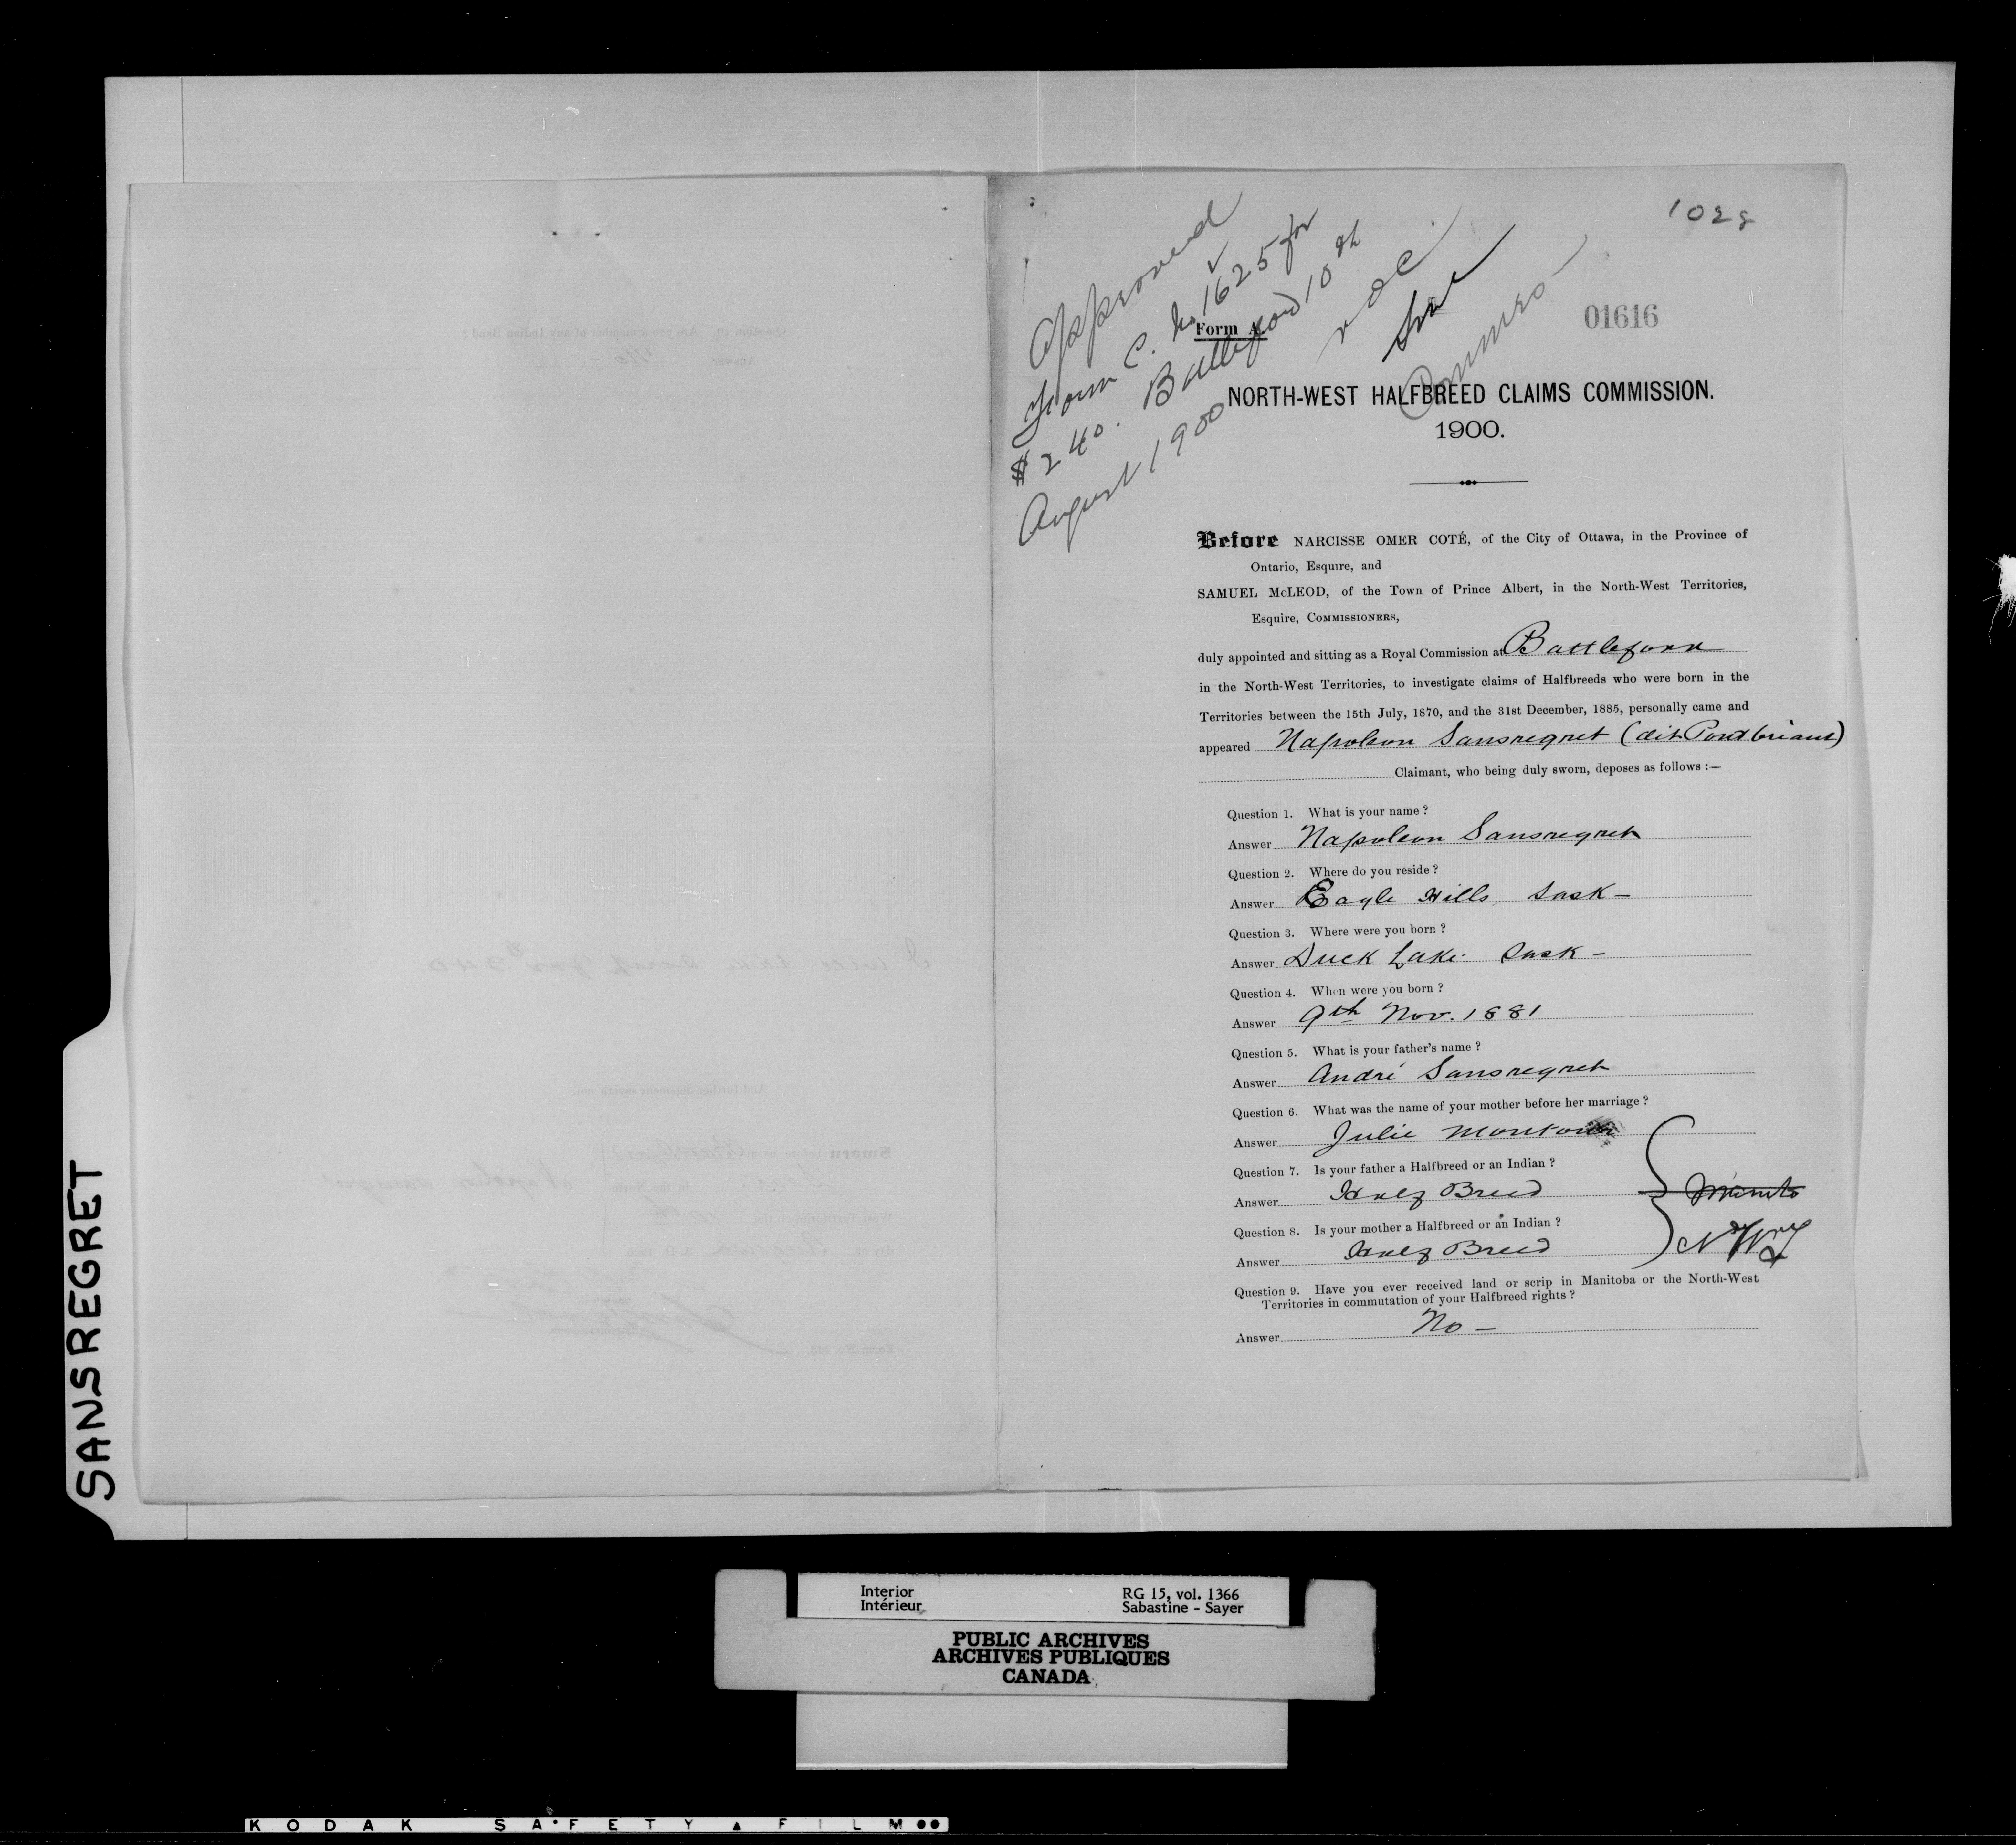 1028
01616
Approved
Form C. No 1625 for
$240. Battleford 10th
August 1900
Form A.
NORTH-WEST HALFBREED CLAIMS COMMISSION.
1900.
Before NARCISSE OMER COTÉ, of the City of Ottawa, in the Province of
Ontario, Esquire, and
SAMUEL McLEOD, of the Town of Prince Albert, in the North-West Territories,
Esquire, COMMISSIONERS,
duly appointed and sitting as a Royal Commission at Battleford
in the North-West Territories, to investigate claims of Halfbreeds who were born in the
Territories between the 15th July, 1870, and the 31st December, 1885, personally came and
appeared Napoleon Sansregret (dit Pontbriant)
Claimant, who being duly sworn, deposes as follows :—
Question 1. What is your name ?
Answer Napoleon Sansregret
Question 2. Where do you reside ?
Answer Eagle Hills Sask –
Question 3. Where were you born ?
Answer Duck Lake Sask –
Question 4. When were you born ?
Answer 9th Nov. 1881
Question 5. What is your father's name ?
Answer André Sansregret
Question 6. What was the name of your mother before her marriage ?
Answer Julie Montour
Question 7. Is your father a Halfbreed or an Indian ?
Answer Half Breed
Question 8. Is your mother a Halfbreed or an Indian ?
Answer Half Breed
NWT
Question 9. Have you ever received land or scrip in Manitoba or the North-West
Territories in commutation of your Halfbreed rights ?
Answer No –
SANSREGRET
Interior
Intérieur
RG 15, vol. 1366
Sabastine - Sayer
PUBLIC ARCHIVES
ARCHIVES PUBLIQUES
CANADA
KODAK SAFETY FILM